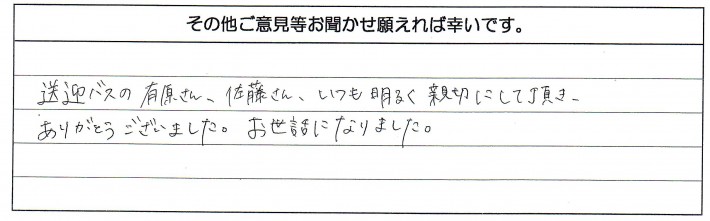 その他ご意見等お聞かせ願えれば幸いです。
送迎バスの有原さん、佐藤さん、いつも明るく親切にして頂き、
ありがとうございました。お世話になりました。